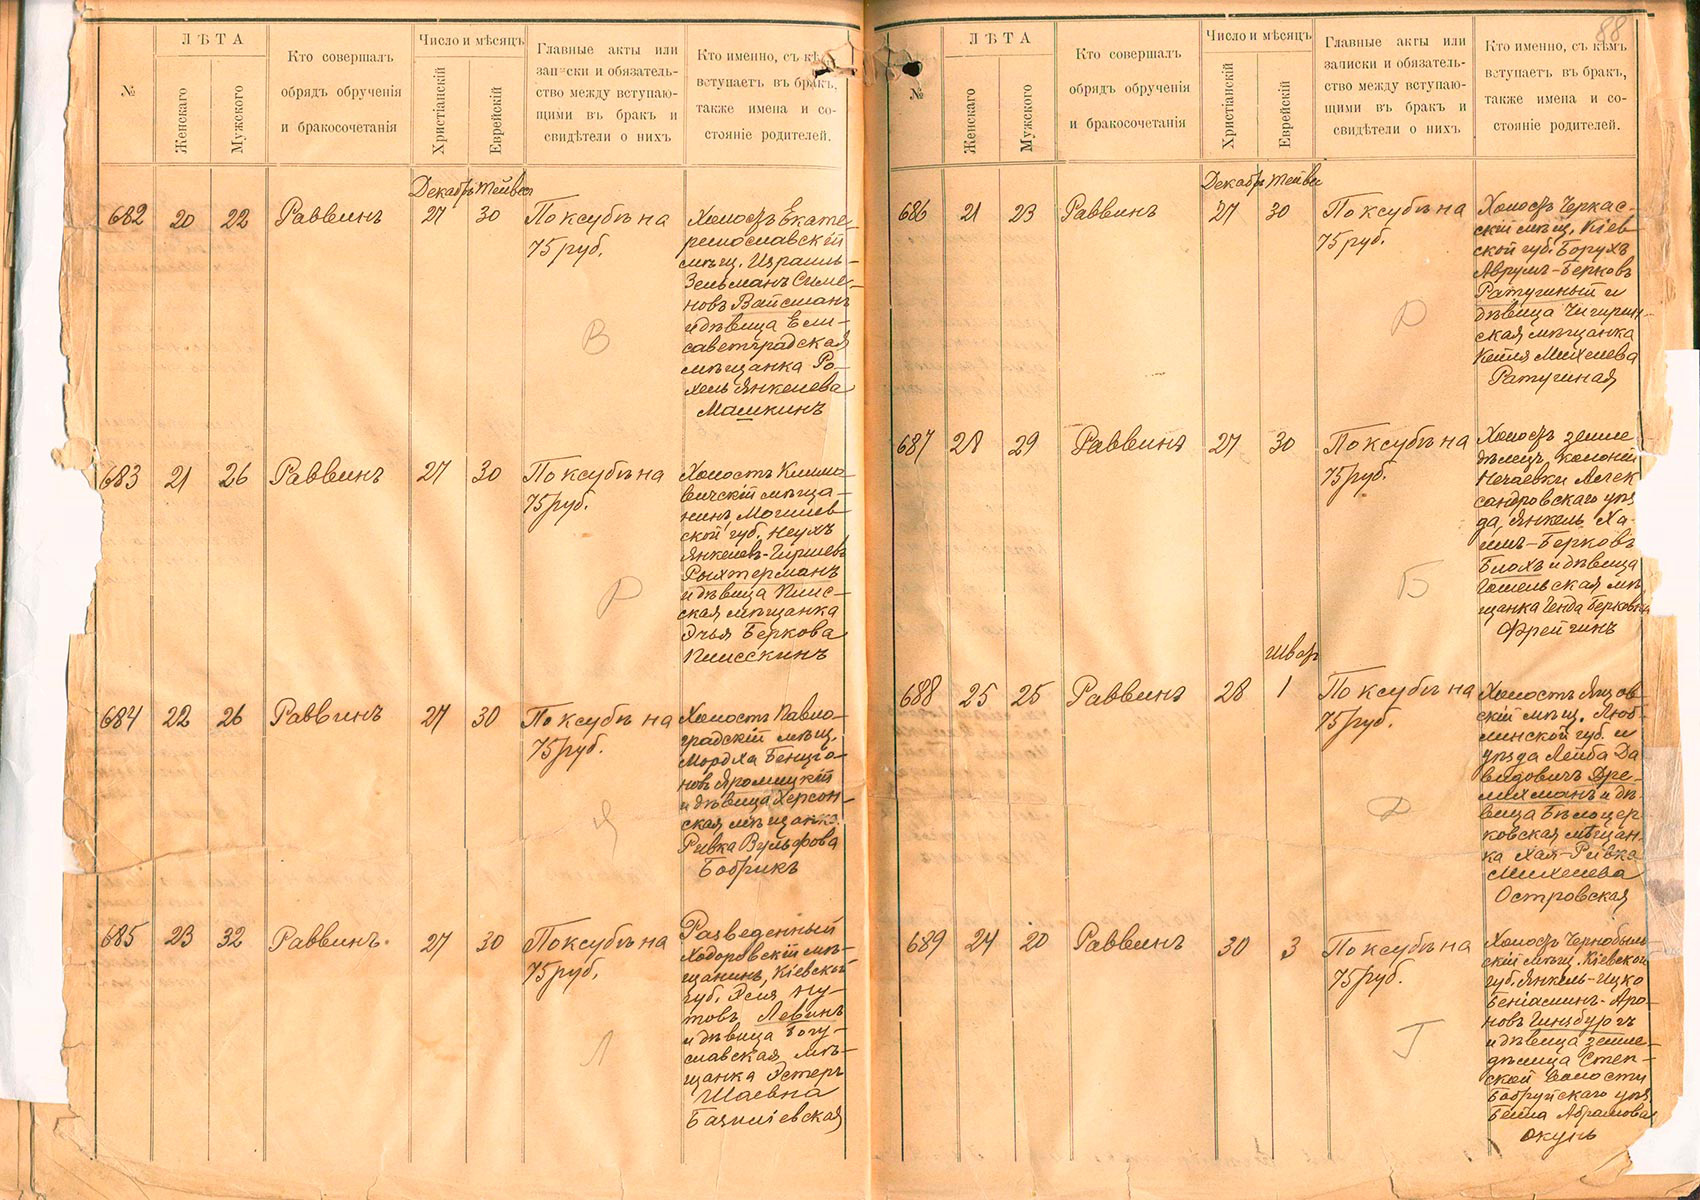 №
ЛѢТА
Женскаго
Мужского
Кто совершалъ
обрядъ обрученія
и бракосочетанія
Число и мѣсяцъ
Христіанскій
Еврейскій
Главные акты или
записки и обязатель-
ство между вступаю-
щими въ бракъ и
свидѣтели о нихъ
Кто именно, съ кѣмъ
вступаетъ въ бракъ,
также имена и со-
стояніе родителей.
Декабрь Тейвес
682 20 22 Раввинъ 27 30
По ксубѣ на
75 руб.
Холостъ Екате-
ринославскій
мѣщ. Израиль-
Зельманъ Симо-
новъ Вайсманъ
и дѣвица Ели-
саветградская
мѣщанка Ро-
хель Янкелева
Машкинъ
В
683 21 26 Раввинъ 27 30
По ксубѣ на
75 руб.
Холостъ Климо-
вичскій мѣща-
нинъ Могилев-
ской губ. Неухъ
Янкелев-Гиршевъ
Рыхтерманъ
и дѣвица
ская мѣщанка
Эчья Беркова
Р
684 22 26 Раввинъ 27 30
По ксубѣ на
75 руб.
Холостъ Павло-
градскій мѣщ.
Мордха Бенціо-
новъ Яромицкій
и дѣвица Херсон-
ская мѣщанка
Ривка Вульфова
Бобрикъ
Я
685 23 32 Раввинъ. 27 30
По ксубѣ на
75 руб.
Разведенный
Ходоровскій мѣ-
щанинъ, Кіевской
губ. Эсія Ну-
товъ Левинъ
и дѣвица Богу-
славская мѣ-
щанка Эстеръ
Шаевна
Л
88
№
ЛѢТА
Женскаго
Мужского
Кто совершалъ
обрядъ обрученія
и бракосочетанія
Число и мѣсяцъ
Христіанскій
Еврейскій
Главные акты или
записки и обязатель-
ство между вступаю-
щими въ бракъ и
свидѣтели о нихъ
Кто именно, съ кѣмъ
вступаетъ въ бракъ,
также имена и со-
стояніе родителей.
Декабрь Тейвес
686 21 23 Раввинъ 27 30
По ксубѣ на
75 руб.
Холостъ Черкас-
скій мѣщ. Кіев-
ской губ. Борухъ
Аврумъ-Берковъ
Ратушный и
дѣвица Чигирин-
ская мѣщанка
Кейля Михелева
Ратушная
Р
687 28 29 Раввинъ 27 30
По ксубѣ на
75 руб.
Холостъ земле-
дѣлецъ колоніи
Нечаевки Алек
сандровскаго уѣз
да, Янкель Ха-
имъ-Берковъ
Блохъ и дѣвица
Гомельская мѣ
щанка Генда Беркова
Фрейгинъ
Б
Шватъ
688 25 25 Раввинъ 28 1
По ксубѣ на
75 руб.
Холостъ
скій мѣщ. Люб-
линской губ. и
уѣзда Лейба Да
видовичъ Фре-
михманъ и дѣ-
вица Бѣлоцер-
ковская мѣщан-
ка Хая-Ривка
Михелева
Островская
Ф
689 24 20 Раввинъ 30 3
По ксубѣ на
75 руб.
Холостъ Чернобыль-
скій мѣщ. Кіевской
губ. Янкель-Ицко
Беніаминъ-Аро-
новъ Гинзбургъ
и дѣвица земле-
дѣлица Степ-
ской волости
Бобруйскаго уѣз
Бейла Абрамова
Окунь
Г